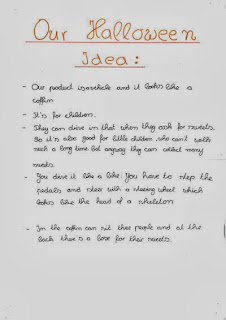 Our Halloween
Idea:
- Our product is a vehicle and it looks like a
coffin
- It's for children.
- They can drive in that when they ask for sweets.
So it's also good for little children, who can't walk
such a long time but anyway they can collect many
sweets.
- You drive it like a bike. You have to step the
pedals and steer with a steering wheel which
looks like the head of a skeleton
- In the coffin can sit three people and at the
back there's a box for their sweets.